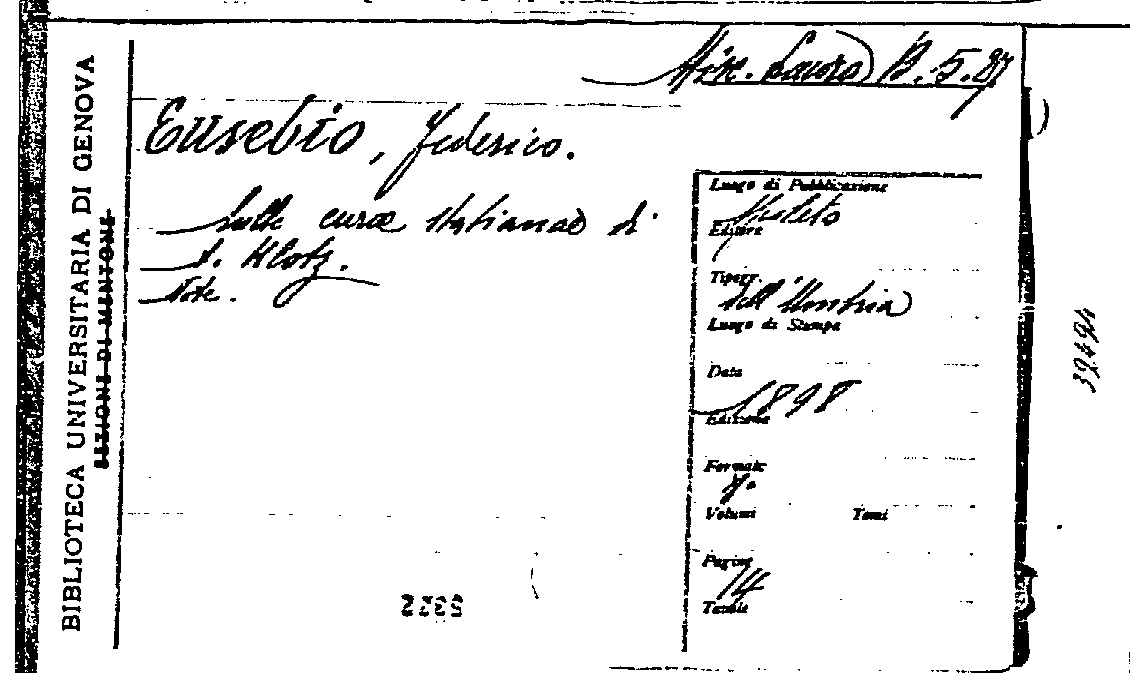 BIBLIOTECA UNIVERSITARIA DI GENOVA
SEZIONE DI MENTONE
Misc. Lavoro B. 5. 87
Eusebio, Federico.
Sulle curae Statianae di
A. Klotz.
Note.
Luogo di Pubblicazione
Spoleto
Editore
Tipogr.
dell'Umbria
Luogo di Stampa
Data
1898
Edizione
Formato
8°
Volumi Tomi
Pagine
14
Tavole
5322